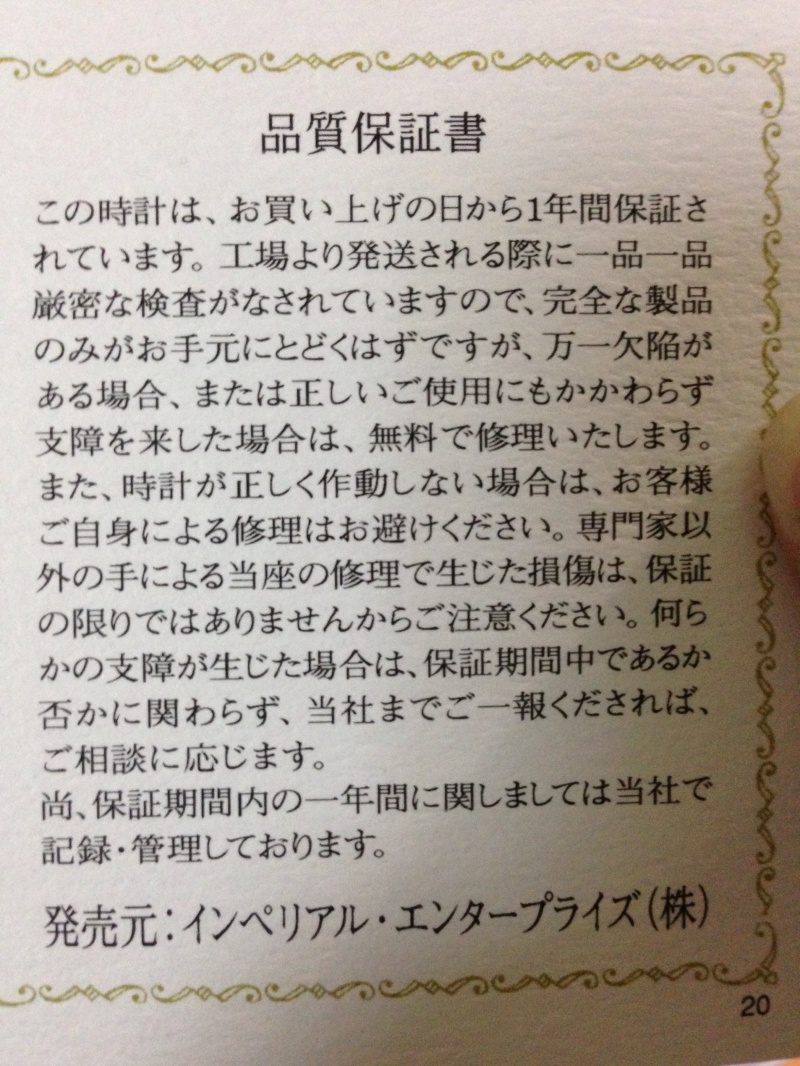 品質保証書
この時計は、お買い上げの日から1年間保証さ
れています。工場より発送される際に一品一品
厳密な検査がなされていますので、完全な製品
のみがお手元にとどくはずですが、万一欠陥が
ある場合、または正しいご使用にもかかわらず
支障を来した場合は、無料で修理いたします。
また、時計が正しく作動しない場合は、お客様
ご自身による修理はお避けください。専門家以
外の手による当座の修理で生じた損傷は、保証
の限りではありませんからご注意ください。何ら
かの支障が生じた場合は、保証期間中であるか
否かに関わらず、当社までご一報くだされば、
ご相談に応じます。
尚、保証期間内の一年間に関しましては当社で
記録・管理しております。
発売元：インペリアル・エンタープライズ（株）
20